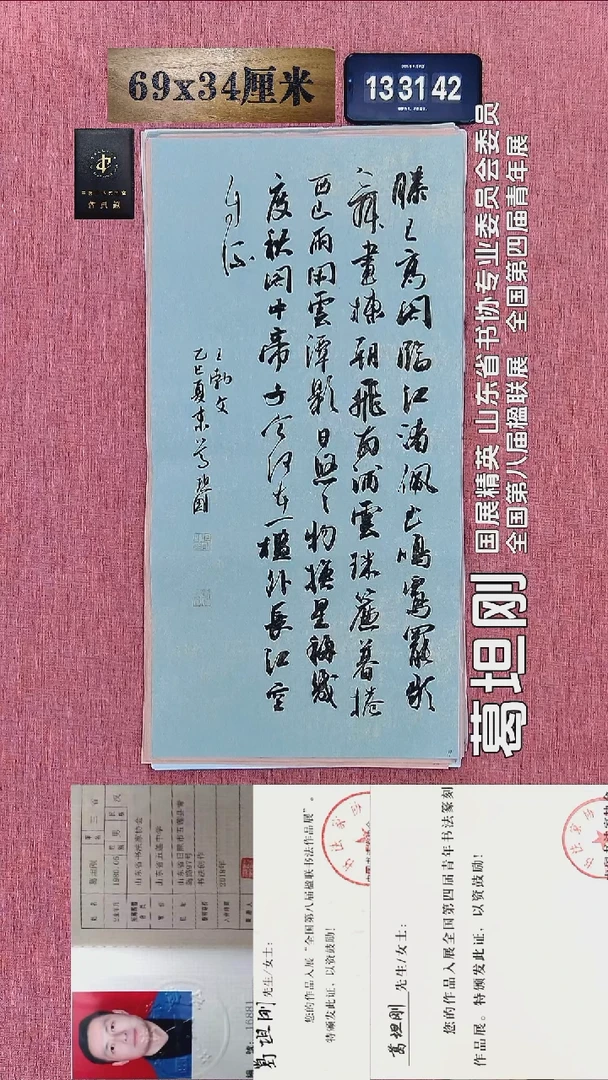 69x34厘米
13 31 42
滕王高阁臨江渚佩玉鳴鸞罷歌
舞畫棟朝飛南浦雲珠簾暮捲
西山雨閒雲潭影日悠々物換星移幾
度秋阁中帝子今何在檻外長江空
自流
王勃文
乙巳夏末葛坦刚
国展精英 山东省书协专业委员会委员
全国第八届楹联展 全国第四届青年展
葛坦刚
山东省书法家协会
2019年
葛坦刚 先生/女士：
您的作品入展“全国第八届楹联书法作品展”。
特颁发此证，以资鼓励！
葛坦刚 先生/女士：
您的作品入展全国第四届青年书法篆刻
作品展。特颁发此证，以资鼓励！